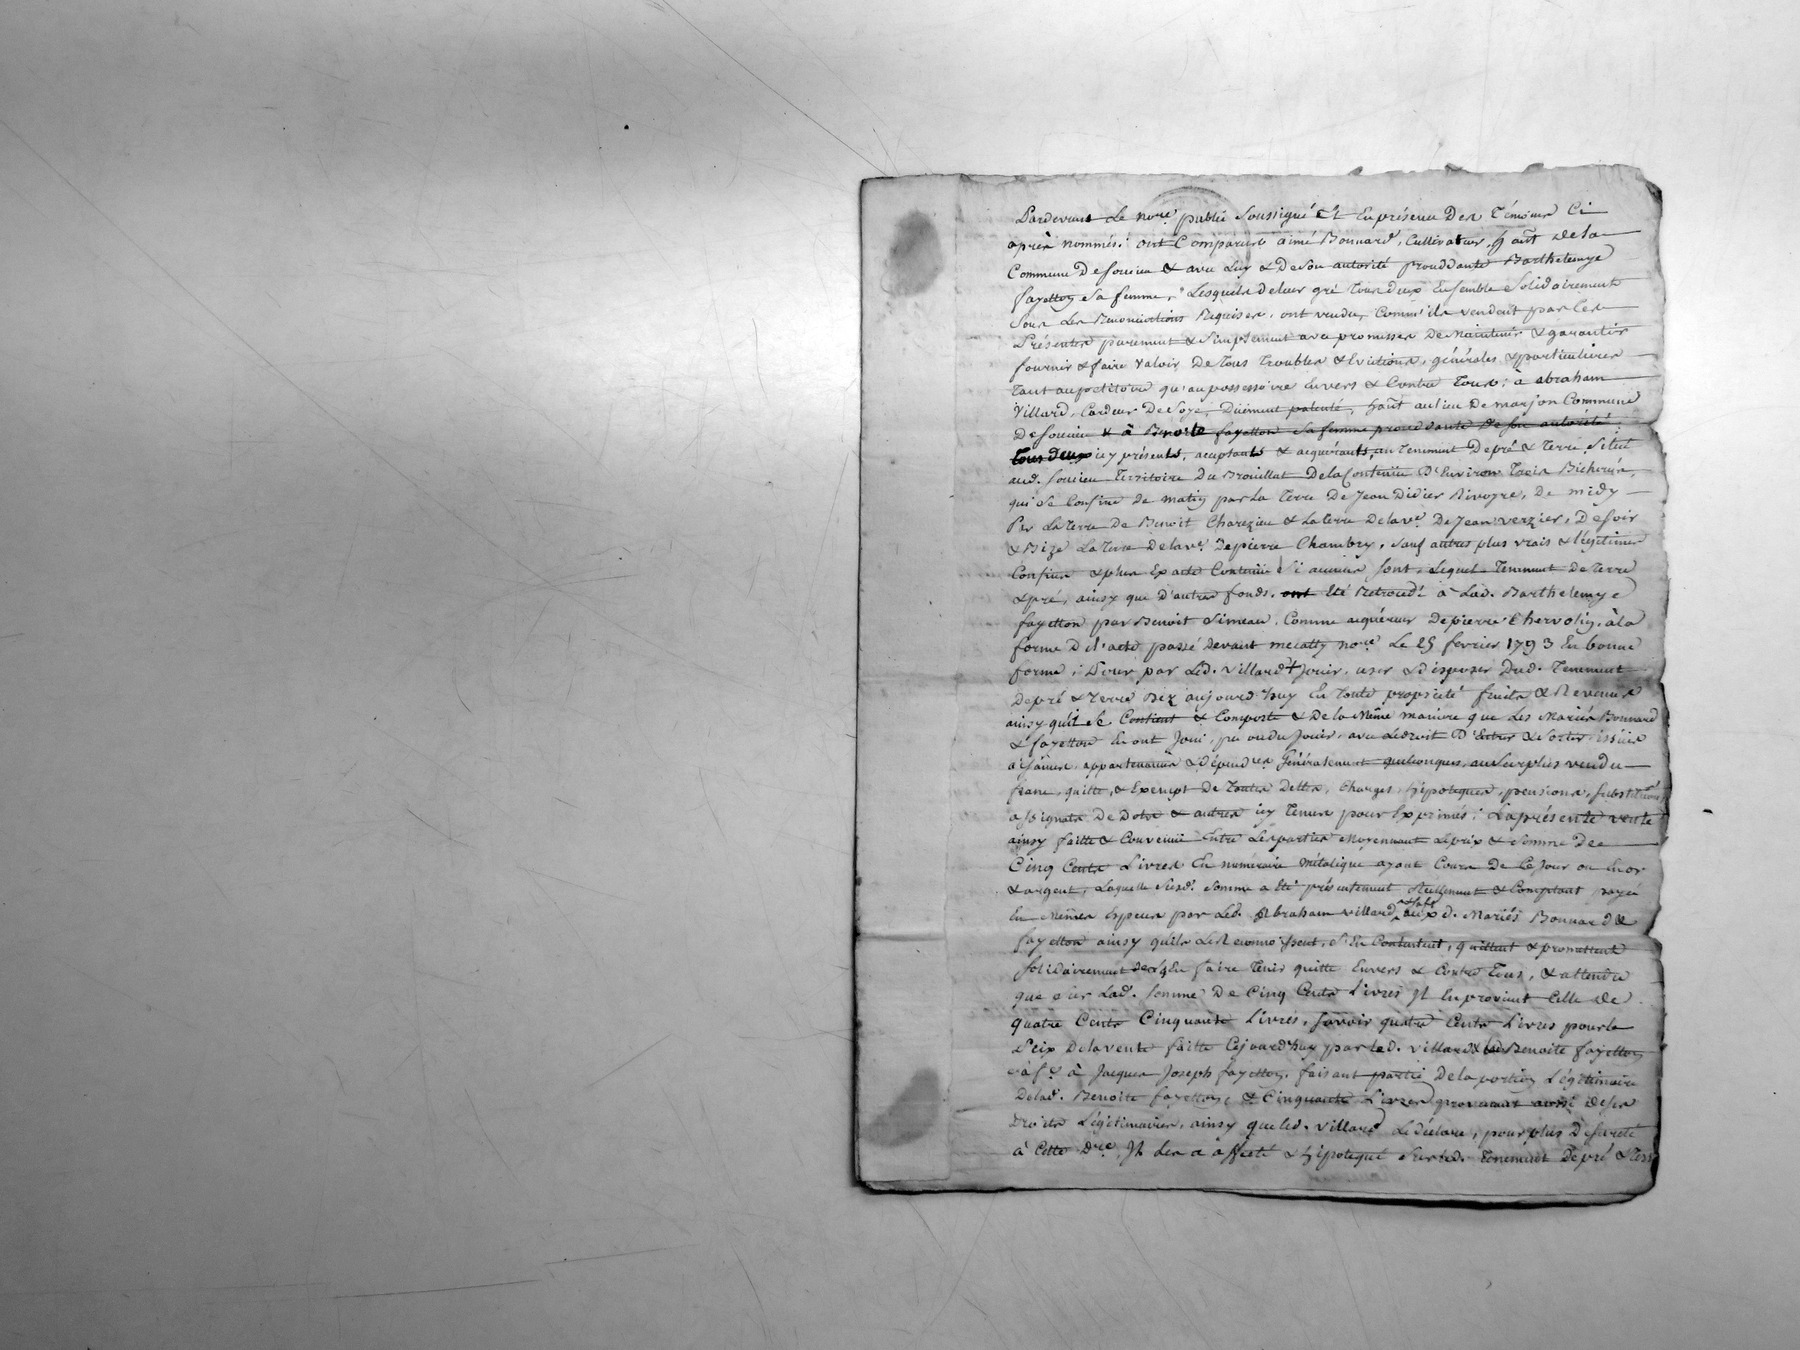 Pardevant Le nore public Soussigné Et En présence Des Témoins Ci
après nommés: ont Comparus aimé Bonnard, Cultivateur, hant dela
Commune De soucieu & avec Luy & De Son autorité procédante Barthelemye
fayetton Sa femme, Lesquels de leur gré Tous deux Ensemble Solidairement
Sous Les Renonciations Requises, ont vendu, Comm'ils vendent par Les
Présentes purement & Simplement avec promesses De Maintenir & garantir
fournir & faire valoir De Tous Troubles & Evictions, générales & particulieres
Tant au petitoire qu'au possessoire Envers & Contre Tous; à abraham
Villard, Cardeur De Soye, Düement patenté, hant au lieu De marjon Commune
De soucieu & à Benoite fayetton Sa femme procedante De son autorité
Tous deux icy présents, acceptants & acquérants, un Tenement De pré & Terre, Situé
aud. Soucieu Territoire Du Brouillat De la Contenüe D'Environ Trois Bicherées,
qui Se Confine de matin par La Terre De Jean Didier Rivoyre, De midy
Par La Terre De Benoit Charezieu & La Terre De la ve De Jean verzier, De soir
& Bize La Terre De la ve De pierre Chambry, Sauf autres plus vrais & légitimes
Confins & plus Exacte Contenüe Si aucuns Sont, Lequel Tenement De Terre
& pré, ainsy que d'autres fonds, ont été Retrocédé à Lad. Barthelemye
fayetton par Benoit Simeau, Comme acquéreur De pierre Chervolin, à la
forme D'l'acte passé devant mecatty nore Le 25 février 1793 En bonne
forme; Pour par Led. Villard + Jouir, user & disposer Dud. Tenement
De pré & Terre Dez aujourd'huy En Toute propriété fruits & Revenus
ainsy qu'il Se Contient & Comporte & De la Même maniere que Les Mariés Bonnard
& fayetton En ont Joui, pu ou du Jouir, avec Le droit D'Entrer & Sortir, issües
aisances, appartenances & dépendces Généralement quelconques, au Surplus vendu
franc, quitte, & Exempt De Toutes Dettes, Charges, hipoteques, pensions, Substitutions
assignats De Dots & autres icy Tenus pour Exprimés; La présente vente
ainsy faitte & Convenüe Entre Les parties Moyennant Le prix & Somme De
Cinq Cents Livres En numéraire métalique ayant Cours De Ce Jour ou En or
& argent, Laquelle Susd. Somme a Eté présentement Réellement & Comptant payé
En mêmes Especes par Led. Abraham Villard, auxd. Mariés Bonnard &
fayetton ainsy qu'ils Le Reconnoissent, s'En Contentent, quittent & promettent
Solidairement En faire Tenir quitte Envers & Contre Tous, & attendu
que Sur Lad. Somme De Cinq Cents Livres Il En provient Celle De
quatre Cents Cinquante Livres, Savoir quatre Cents Livres pour le
Prix De la vente faitte Cejourd'huy par Led. Villard & Benoite fayetton
à Jacques Joseph fayetton, faisant partie De la portion Légitimaire
De lad. Benoite fayetton, & Cinquante Livres provenant aussi De ses
Droits Légitimaires, ainsy que Led. Villard Le déclare, pour plus De sureté
à Cette Dre Il Les a affecté & hipotequé Sur led. Tenement De pré & Terre